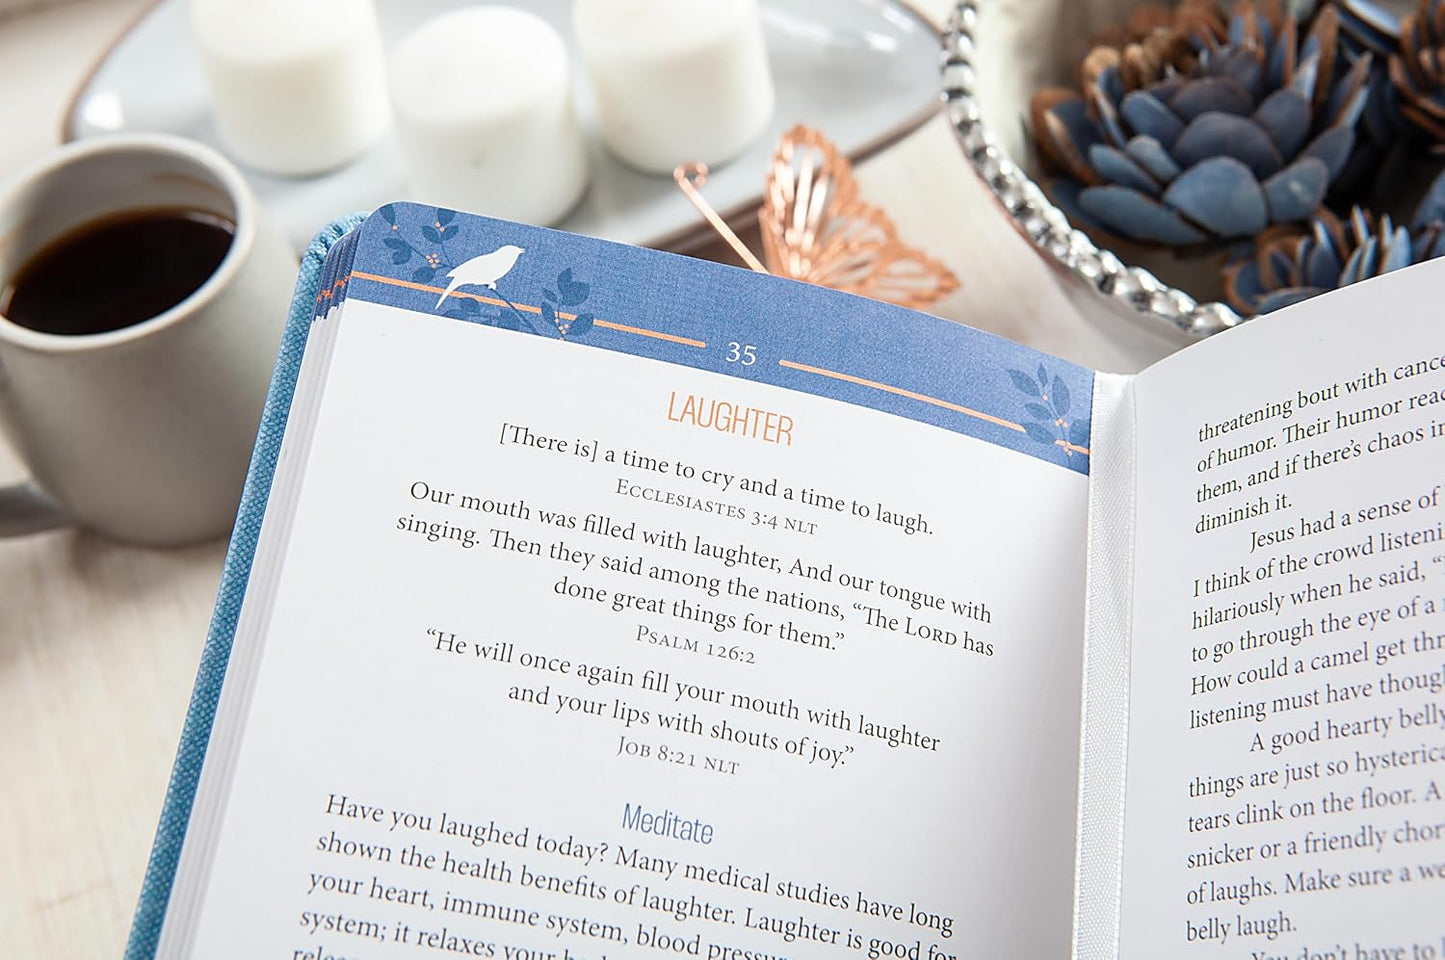 35
LAUGHTER
[There is] a time to cry and a time to laugh.
ECCLESIASTES 3:4 NLT
Our mouth was filled with laughter, And our tongue with
singing. Then they said among the nations, “The LORD has
done great things for them.”
PSALM 126:2
“He will once again fill your mouth with laughter
and your lips with shouts of joy.”
JOB 8:21 NLT
Meditate
Have you laughed today? Many medical studies have long
shown the health benefits of laughter. Laughter is good for
your heart, immune system, blood
system; it relaxes your
threatening bout with
of humor. Their humor
them, and if there’s chaos
diminish it.
Jesus had a sense of
I think of the crowd
hilariously when he said,
to go through the eye of a
How could a camel get
listening must have
A good hearty belly
things are just so
tears clink on the floor. A
snicker or a friendly
of laughs. Make sure a
belly laugh.
You don’t have to